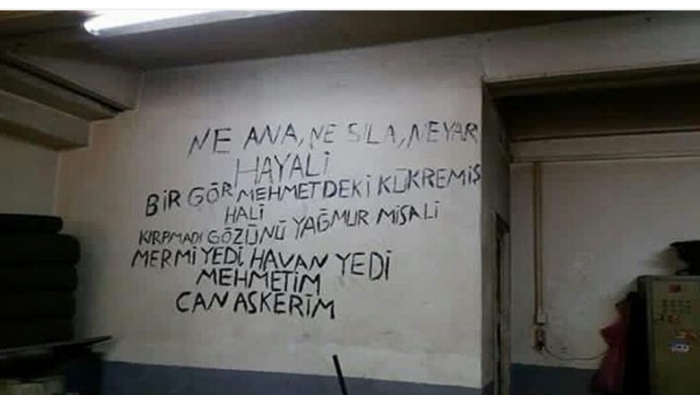 NE ANA, NE SILA, NE YAR
HAYALİ
BİR GÖR MEHMETDEKİ KÜKREMİŞ
HALİ
KIRPMADI GÖZÜNÜ YAĞMUR MİSALİ
MERMİ YEDİ, HAVAN YEDİ
MEHMETİM
CAN ASKERİM